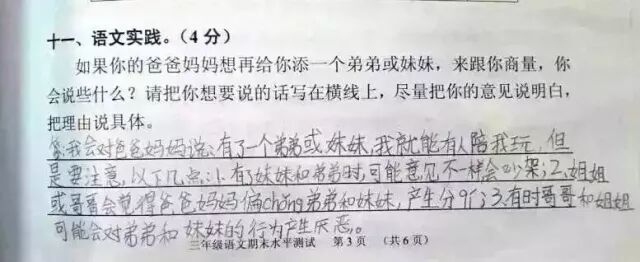 十一、语文实践。（4分）
如果你的爸爸妈妈想再给你添一个弟弟或妹妹，来跟你商量，你
会说些什么？请把你想要说的话写在横线上，尽量把你的意见说明白，
把理由说具体。
我会对爸爸妈妈说：有了一个弟弟或妹妹，我就能有人陪我玩，但
是要注意，以下几点：1.有妹妹和弟弟时，可能意见不一样会吵架；2.姐姐
或哥哥会觉得爸爸妈妈偏chǒng弟弟和妹妹，产生分歧；3.有时哥哥和姐姐
可能会对弟弟和妹妹的行为产生厌恶。
三年级语文期末水平测试 第3页 （共6页）